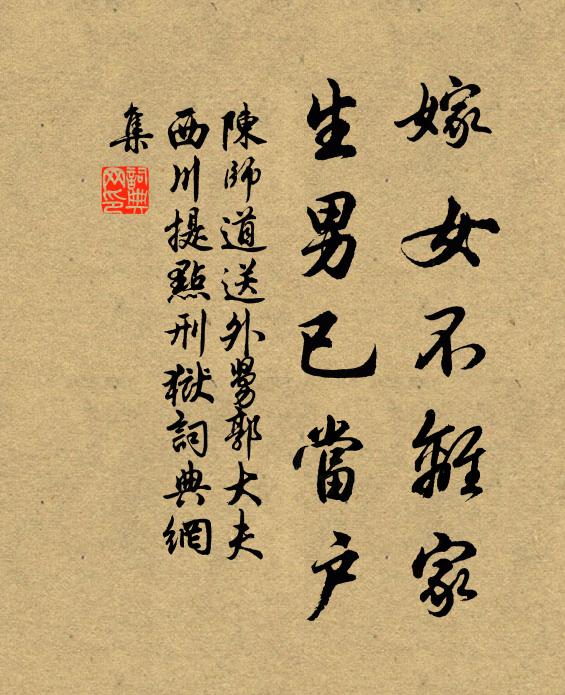 嫁女不離家
生男已當户
陳師道送外舅郭大夫
西川提點刑獄詞典網
集
詞典
网印